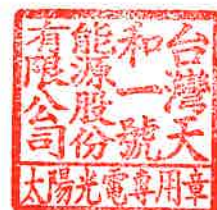 台灣天
和一號
能源股份
有限公司
太陽光電專用章